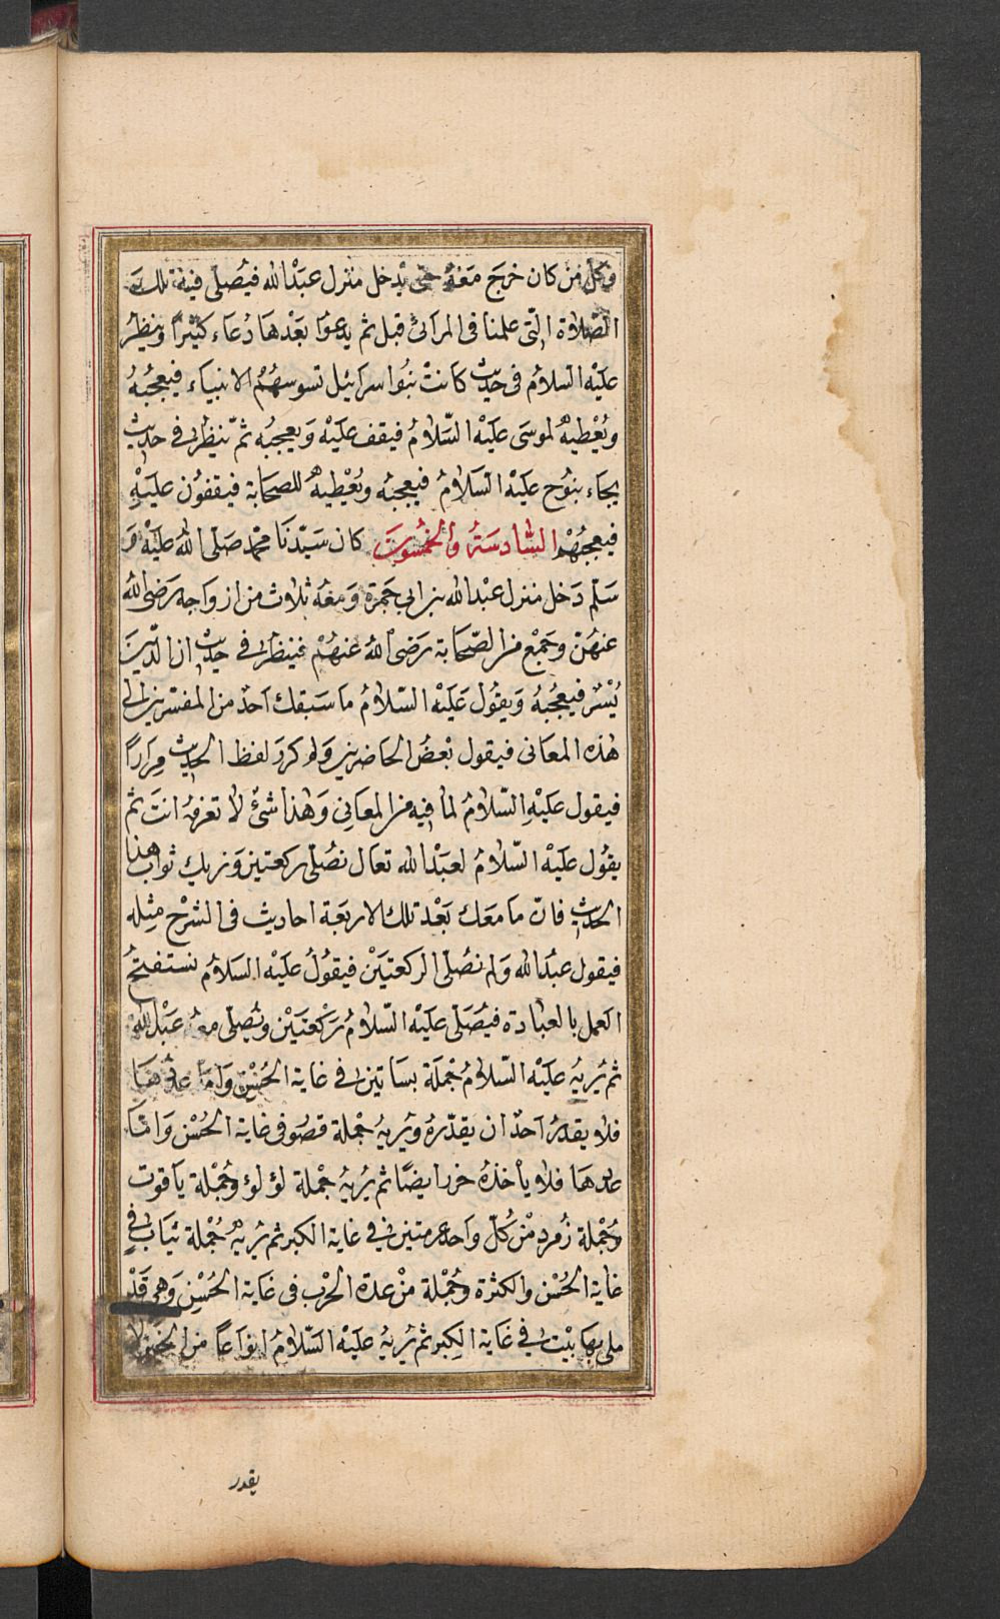 وكل من كان خرج معه حتى يدخل منزل عبد الله فيصلى فيه تلك
الصلاة التى علمنا فى المرائى قبل ثم يدعوا بعدها دعاء كثيرا وينظر
عليه السلام فى حديث كانت بنوا اسرائيل تسوسهم الانبياء فيعجبه
ويعطيه لموسى عليه السلام فيقف عليه ويعجبه ثم ينظر فى حديث
يجاء بنوح عليه السلام فيعجبه ويعطيه للصحابة فيقفون عليه
فيعجبهم السادسة والخمسون كان سيدنا محمد صلى الله عليه و
سلم دخل منزل عبد الله بن ابى جمرة ومعه ثلاث من ازواجه رضى الله
عنهن وجمع من الصحابة رضى الله عنهم فينظر فى حديث ان الدين
يسر فيعجبه ويقول عليه السلام ما سبقك احد من المفسرين الى
هذه المعانى فيقول بعض الحاضرين ولم كرر لفظ الحديث مرارا
فيقول عليه السلام لما فيه من المعانى وهذا شئ لا تعرفه انت ثم
يقول عليه السلام لعبد الله تعال نصلى ركعتين ونريك ثواب هذا
الحديث فان ما معك بعد تلك الاربعة احاديث فى الشرح مثله
فيقول عبد الله ولم نصلى الركعتين فيقول عليه السلام نستفتح
العمل بالعبادة فيصلى عليه السلام ركعتين ويصلى معه عبد الله
ثم يريه عليه السلام جملة بساتين فى غاية الحسن واما عددها
فلا يقدر احد ان يقدره ويريه جملة قصور فى غاية الحسن واما
عددها فلا يأخذه حزر ايضا ثم يريه جملة لؤلوء وجملة ياقوت
وجملة زمرد من كل واحد عرمتين فى غاية الكبر ثم يريه جملة ثياب فى
غاية الحسن والكثرة وجملة من عدة الحرب فى غاية الحسن وهى قد
ملى بها بيت فى غاية الكبر ثم يريه عليه السلام انواعا من الخير لا
يقدر